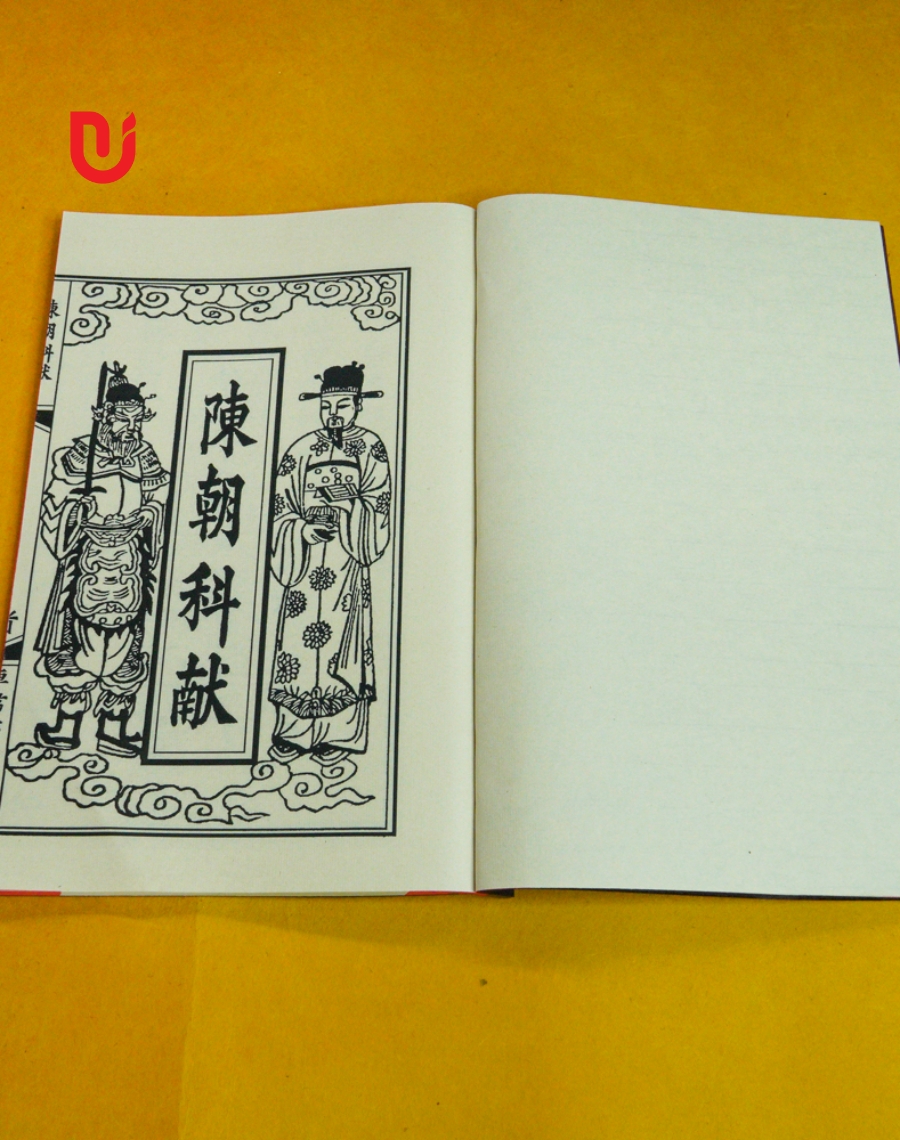 陳朝科献
陳朝科献